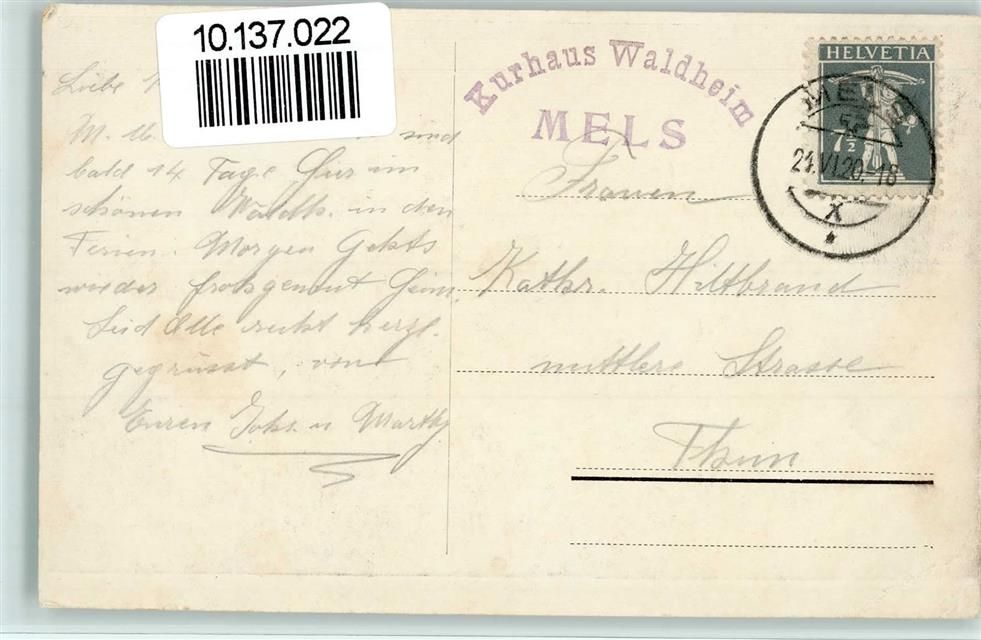 10.137.022
Kurhaus Waldheim
MELS
HELVETIA
7½
MELS
21.VI.20.-18
X
Liebe
M. sind
bald 14 Tage hier im
schönen Waldh. in den
Ferien. Morgen gehts
wieder frohgemut heim.
Seid Alle recht herzl.
gegrüsst, von
Euren Johs. u Marthy
Frauen
Kathr. Hiltbrand
mittlere Strasse
Thun